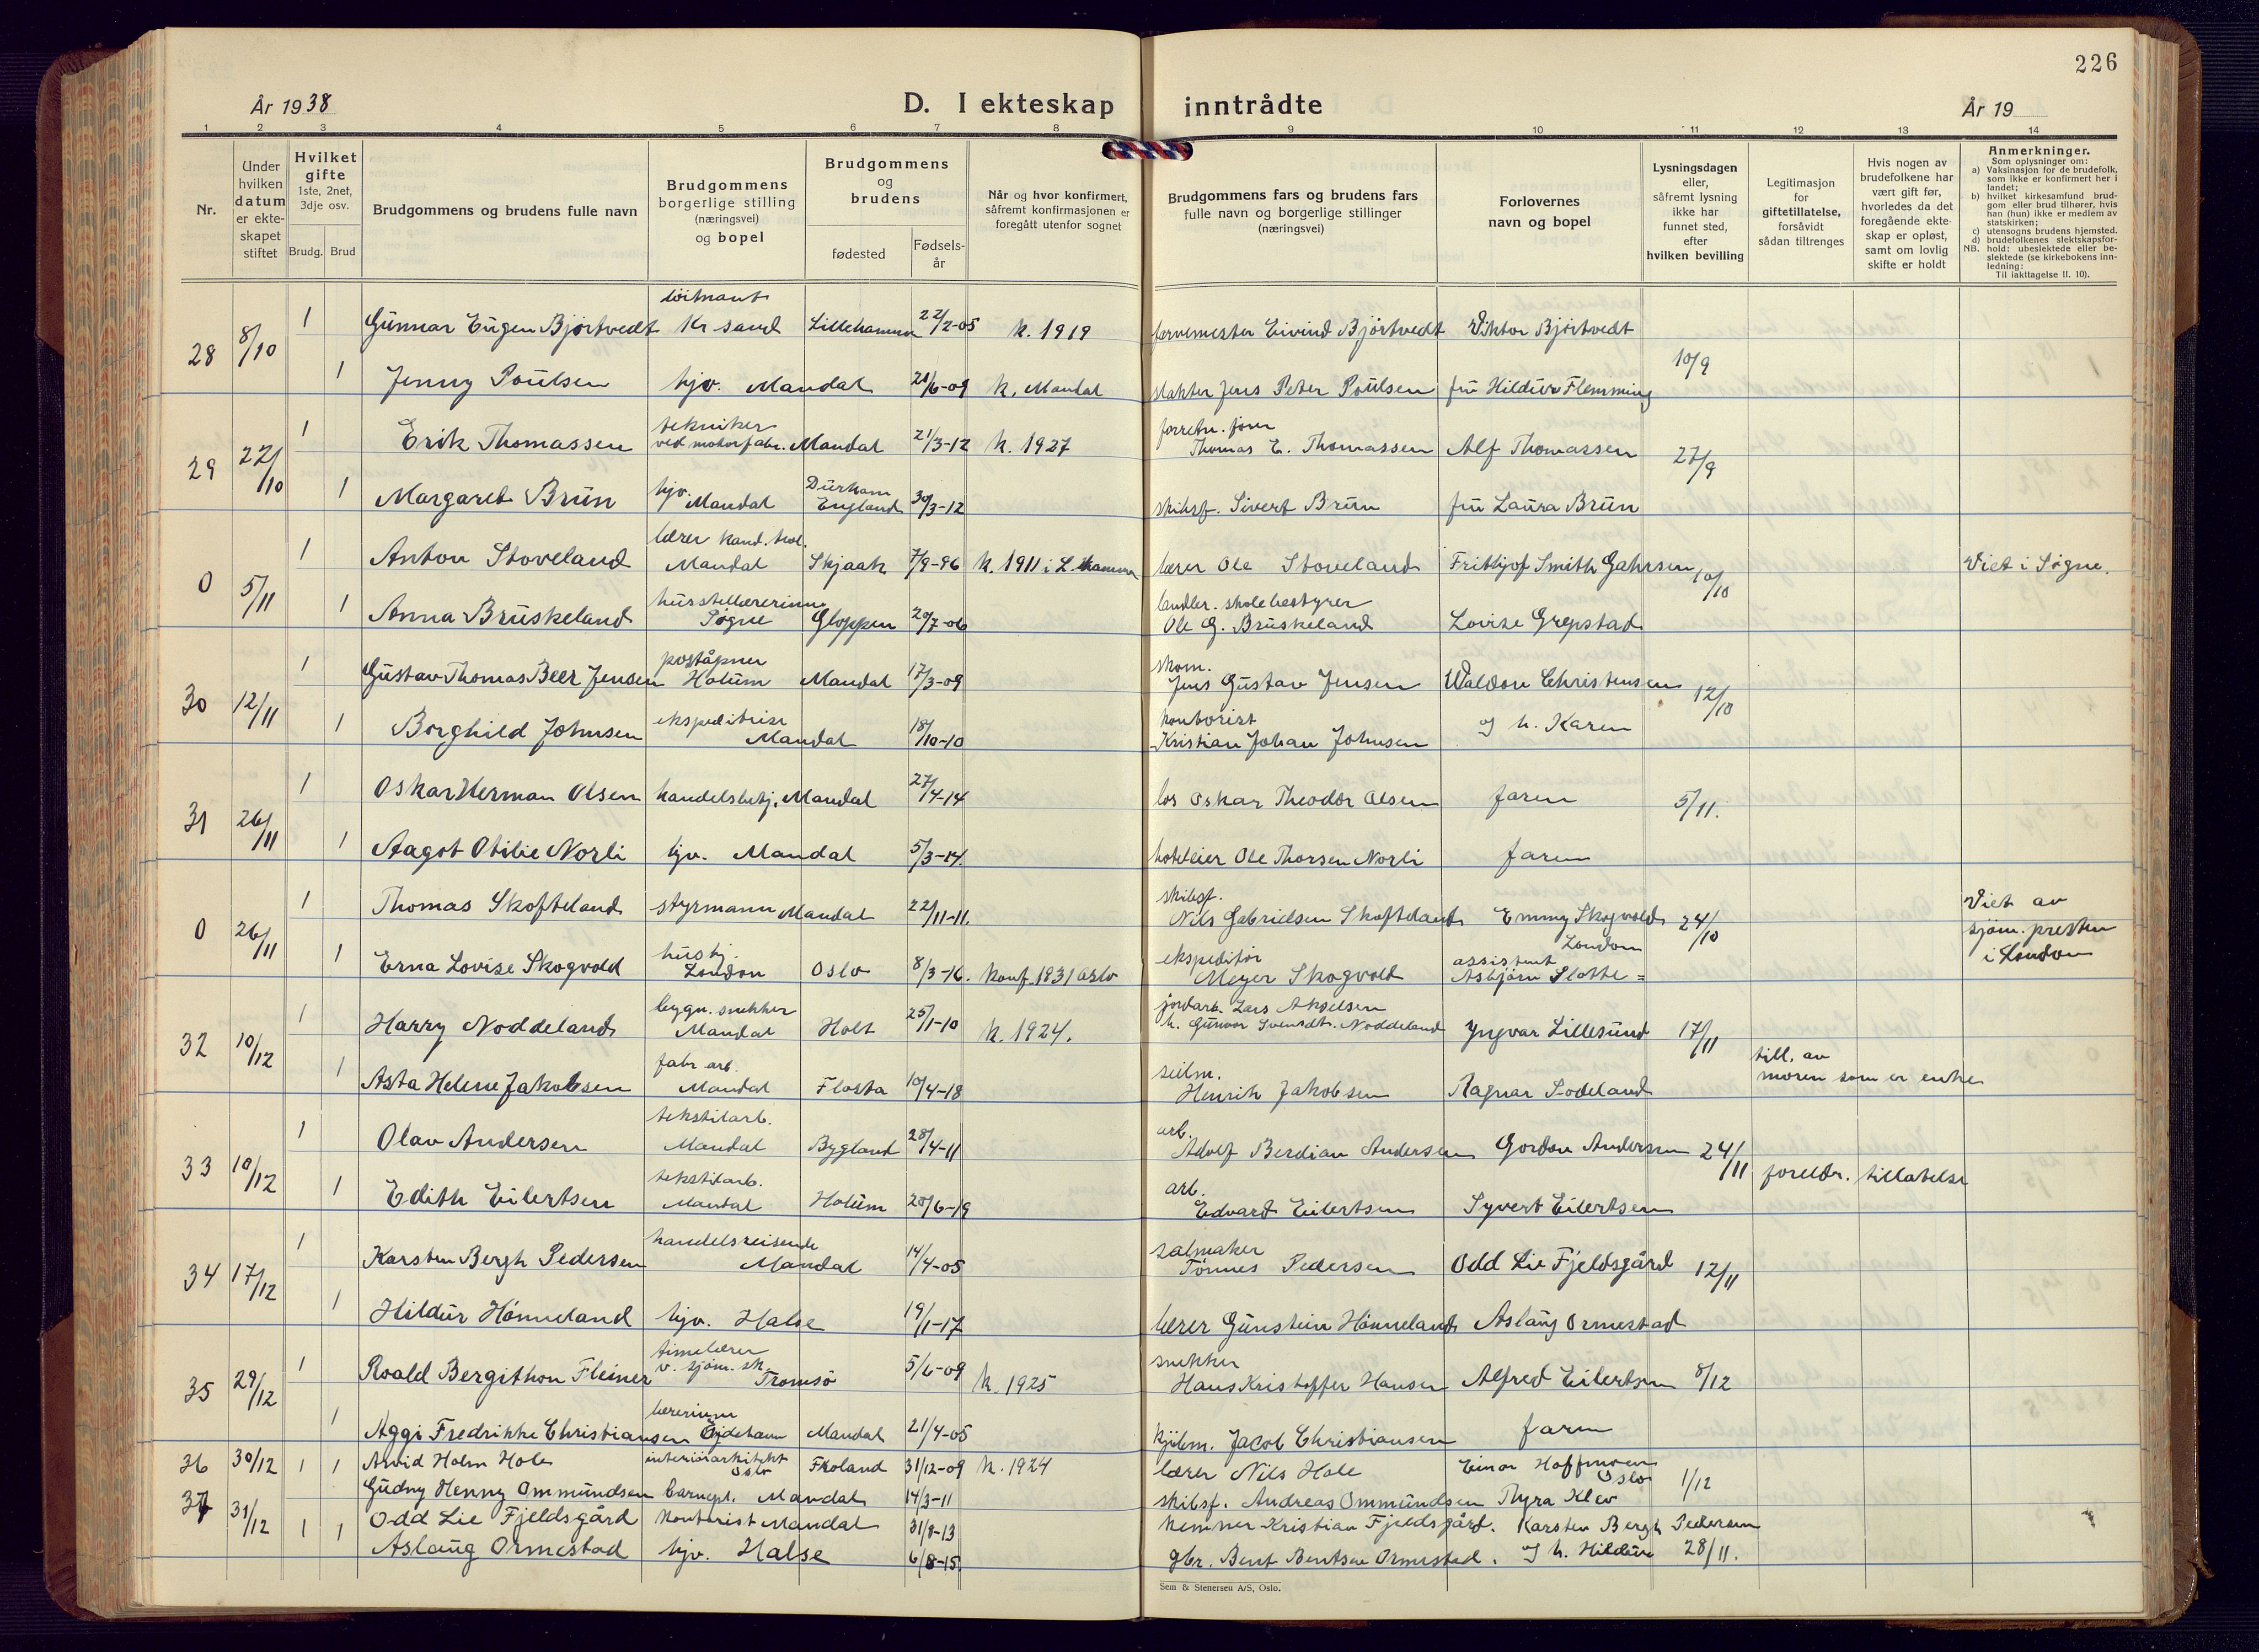 226
År 1938
D. I ekteskap inntrådte
År 19
1 2 3 4 5 6 7 8 9 10 11 12 13 14
Nr.
Under hvilken datum er ekteskapet stiftet
Hvilket gifte 1ste, 2net, 3dje osv.
Brudg. Brud
Brudgommens og brudens fulle navn
Brudgommens borgerlige stilling (næringsvei) og bopel
Brudgommens og brudens
fødested
Fødsels-år
Når og hvor konfirmert, såfremt konfirmasjonen er foregått utenfor sognet
Brudgommens fars og brudens fars fulle navn og borgerlige stillinger (næringsvei)
Forlovernes navn og bopel
Lysningsdagen eller, såfremt lysning ikke har funnet sted, efter hvilken bevilling
Legitimasjon for giftetillatelse, forsåvidt sådan tiltrenges
Hvis nogen av brudefolkene har vært gift før, hvorledes da det foregående ekteskap er opløst, samt om lovlig skifte er holdt
Anmerkninger.
Som oplysninger om:
a) Vaksinasjon for de brudefolk, som ikke er konfirmert her i landet;
b) hvilket kirkesamfund brudgom eller brud tilhører, hvis han (hun) ikke er medlem av statskirken;
c) utensogns brudens hjemsted.
d) brudefolkenes slektskapsforhold: ubeslektede eller beslektede (se kirkebokens innledning:
NB. Til iakttagelse II. 10).
28 8/10 1 Gunnar Eugen Bjørtvedt løitnant Kr sand Lillehammer 22/2-05 k. 1919 farvemester Eivind Bjørtvedt Viktor Bjørtvedt 10/9
1 Jenny Poulsen hjv. Mandal 21/6-09 k. Mandal slakter Jens Peter Poulsen fru Hildur Flemming
29 22/10 1 Erik Thomassen tekniker ved motorfabr. Mandal 21/3-12 k. 1927 forretn. fører Thomas E. Thomassen Alf Thomassen 27/9
1 Margaret Brun hjv. Mandal Durham England 30/3-12 skibsf. Sivert Brun fru Laura Brun
0 5/11 1 Anton Stoveland lærer kand. teol. Mandal Skjaak 7/9-96 k. 1911 i L.hammer lærer Ole Stoveland Frithjof Smith Gahrsen 10/10 Viet i Søgne.
1 Anna Bruskeland husstellærerinne Søgne Gloppen 20/7-06 landbr. skolebestyrer Ole G. Bruskeland Lovise Grepstad
30 12/11 1 Gustav Thomas Beer Jensen poståpner Holum Mandal 17/3-09 skom. Jens Gustav Jensen Waldon Christensen 12/10
1 Borghild Johnsen ekspeditrise Mandal 18/10-10 kontorist Kristian Johan Johnsen og h. Karen
31 26/11 1 Oskar Herman Olsen handelsbetj. Mandal 27/4-14 los Oskar Theodor Olsen faren 5/11.
1 Aagot Otilie Norli hjv. Mandal 5/3-14. hoteleier Ole Thorsen Norli faren
0 26/11 1 Thomas Skofteland styrmann Mandal 22/11-11. skibsf. Nils Gabrielsen Skofteland Emmy Skogvold London 24/10 Viet av sjøm. presten i London
1 Erna Lovise Skogvold husbj. London Oslo 8/3-16. konf. 1931 Oslo ekspeditør Meyer Skogvold assistent Asbjørn Slotte =
32 10/12 1 Harry Noddeland bygn. snekker Mandal Holt 25/1-10 k. 1924. jordarb. Lars Akselsen h. Gunvor Svensdt. Noddeland Yngvar Lillesund 17/11
1 Asta Helene Jakobsen fabr arb. Mandal Flosta 10/4-18 seilm. Henrik Jakobsen Ragnar Sodeland till. av moren som er enke
33 10/12 1 Olav Andersen tekstilarb. Mandal Bygland 28/4-11 arb. Adolf Berdian Andersen Gordon Andersen 24/11 foreldr. tillatelse
1 Edith Eilertsen tekstilarb. Mandal Holum 20/6-19 arb. Edvard Eilertsen Syvert Eilertsen
34 17/12 1 Karsten Bergh Pedersen handelsreisende Mandal 14/4-05 salmaker Tønnes Pedersen Odd Lie Fjeldsgård 12/11
1 Hildur Hønneland hjv. Halse 19/1-17 lærer Gunstein Hønneland Aslaug Ormestad
35 29/12 1 Roald Bergithon Fleiner timelærer v. sjøm. sk. Tromsø 5/6-09 k. 1925 snekker Hans Kristoffer Hansen Alfred Eilertsen 8/12
1 Aggi Fredrikke Christiansen lærerinne Eydehavn Mandal 21/4-05 kjølm. Jacob Christiansen faren
36 30/12 1 1 Arvid Holm Hole interiørarkitekt Oslo Froland 31/12-09 k. 1924 lærer Nils Hole Einar Hoffmoen Oslo 1/12
Gudny Henny Ommundsen barnepl. Mandal 14/3-11 skibsf. Andreas Ommundsen Thyra Klev
37 31/12 1 1 Odd Lie Fjeldsgård kontorist Mandal 31/8-13 kemner Kristian Fjeldsgård. Karsten Bergh Pedersen
Aslaug Ormestad hjv. Halse 6/8-15. gbr. Bent Bentsen Ormestad. og h. Hildur 28/11.
Sem & Stenersen A/S, Oslo.